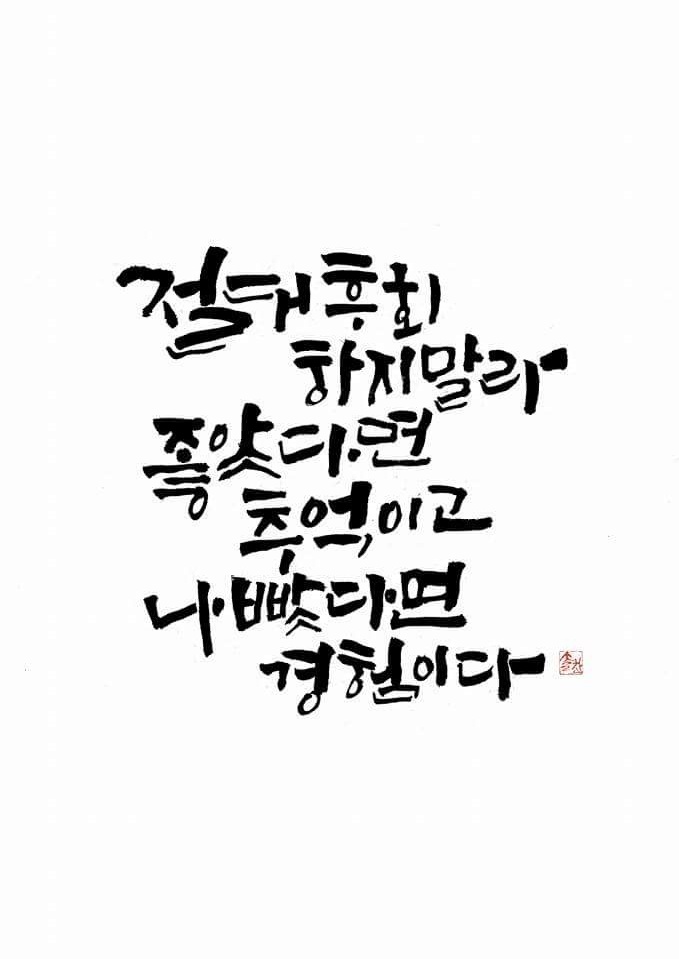 절대후회
하지말라
좋았다면
추억이고
나빴다면
경험이다